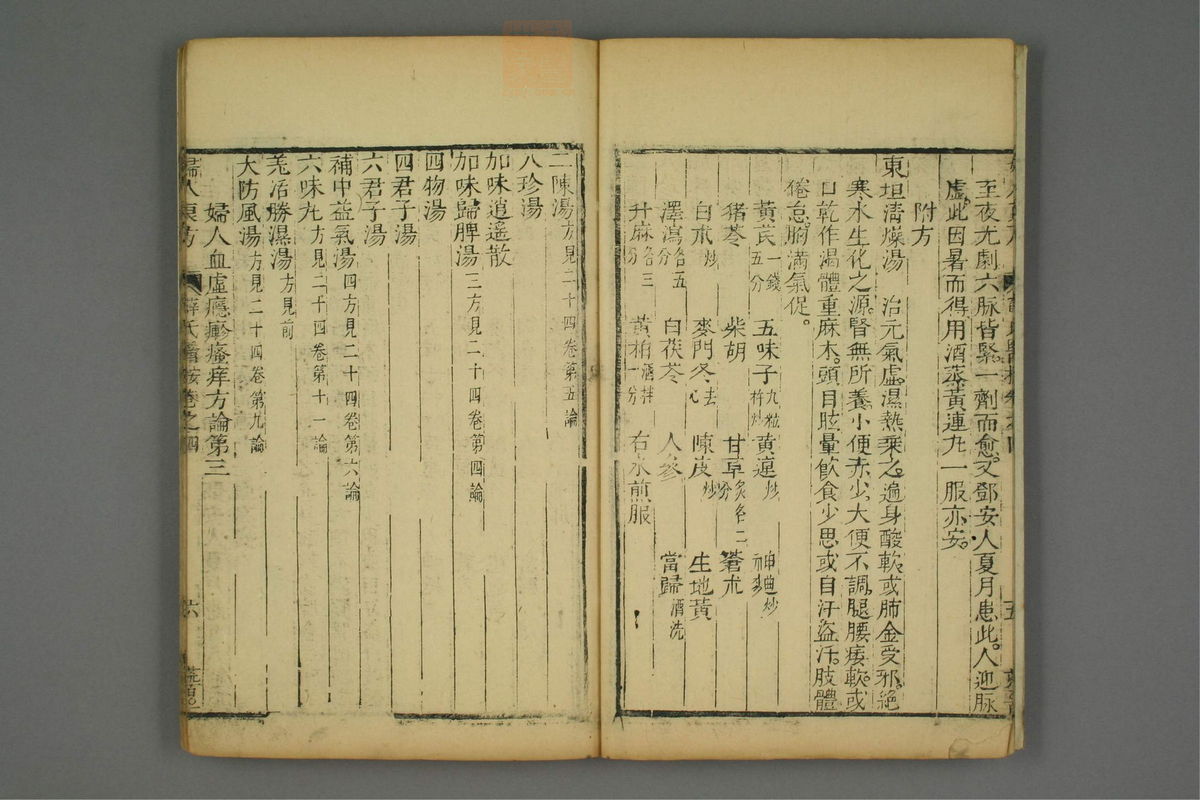 至夜尤劇六脉皆緊一劑而愈。又鄧安人夏月患此。人迎脉
虛。此因暑而得用酒蒸黃連丸一服亦安。
附方
東垣清燥湯 治元氣虛。濕熱乘之。遍身酸軟。或肺金受邪。絕
寒水生化之源。腎無所養。小便赤少。大便不調。腿腰痿軟。或
口乾作渴。體重麻木。頭目眩暈。飲食少思。或自汗盜汗。肢體
倦怠。胸滿氣促。
黃芪一錢五分 五味子九粒杵炒 黃連炒 神麯炒
猪苓 柴胡 甘草炙各二分 蒼朮
白朮炒 麥門冬去心 陳皮炒 生地黃
澤瀉各五分 白茯苓 人參 當歸酒洗
升麻各三分 黃柏酒拌一分 右水煎服
二陳湯方見二十四卷第五論
八珍湯
加味逍遙散
加味歸脾湯三方見二十四卷第四論
四物湯
四君子湯
六君子湯
補中益氣湯四方見二十四卷第六論
六味丸方見二十四卷第十一論
羗活勝濕湯方見前
大防風湯方見二十四卷第九論
婦人血虛癮疹瘙痒方論第三
婦人良方 薛氏醫按卷之四 六